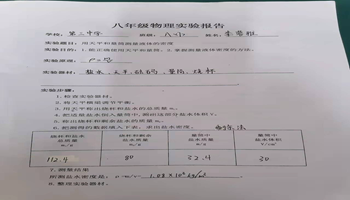 八年级物理实验报告
学校：第二中学 班级：八(12) 姓名：李
实验题目：用天平和量筒测量液体的密度
实验目的：1、能正确使用天平与量筒。2、掌握测量液体密度的方法。
实验原理：
实验器材：盐水、天平、砝码、量筒、烧杯
实验步骤：
1、检查实验器材。
2、将天平横梁调节平衡。
3、用天平称出烧杯和盐水的总质量 m₁
4、把适量盐水倒入量筒中，测出这部分盐水体积 V。
5、称出烧杯和剩余盐水的质量 m₂
6、把测得的数据填入下表，求出盐水密度。
烧杯和盐水总质量 m₁/g 烧杯和剩余盐水质量 m₂/g 量筒中盐水质量 m/g 量筒中盐水体积 V/cm³
112.4 80 32.4 30
7、测量结果
所测盐水密度是：ρ=m/v= 1.08×10³ kg/m³
8、整理实验器材。